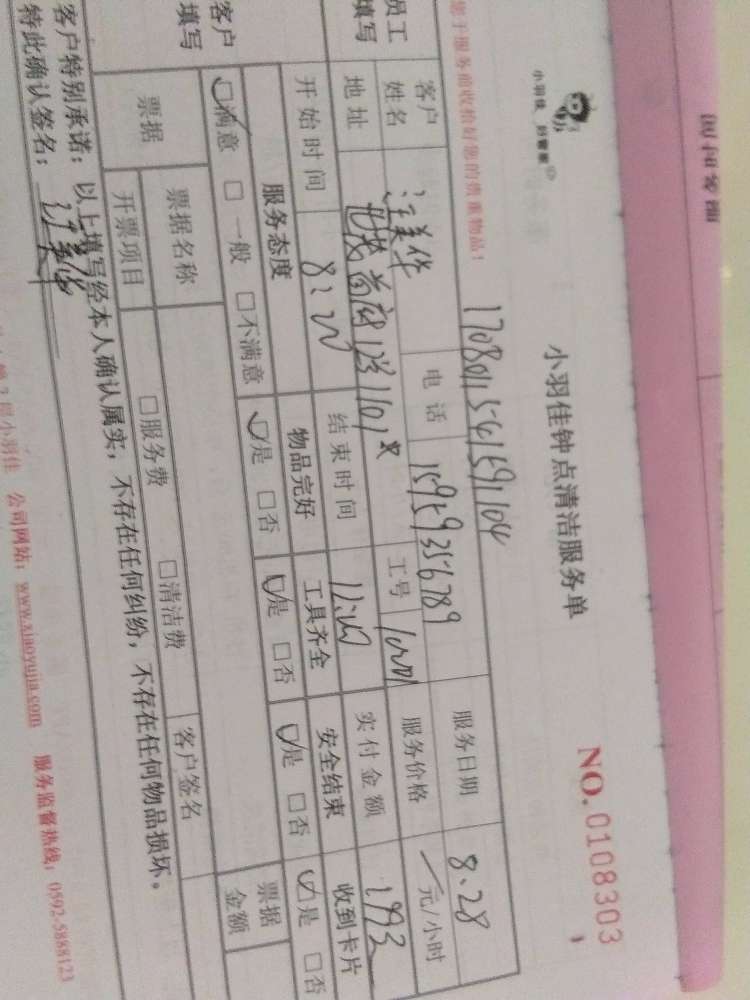 小羽佳 好管家
小羽佳钟点清洁服务单
NO.0108303
您于服务前收拾好您的贵重物品!
服务日期 8.28
员工填写
客户姓名 汪美华 电话 15959356789 服务价格 元/小时
地址 1101 工号 实付金额
开始时间 8:00 结束时间 12:00
服务态度 物品完好 工具齐全 安全结束 收到卡片
客户填写
☑满意 □一般 □不满意 ☑是 □否 ☑是 □否 ☑是 □否 ☑是 □否
票据 票据名称 客户签名 票据金额
开票项目 □服务费 □清洁费
客户特别承诺:以上填写经本人确认属实,不存在任何纠纷,不存在任何物品损坏。
特此确认签名: 汪美华
小羽佳 公司网站:www.xiaoyujia.com 服务监督热线:0592-5888123